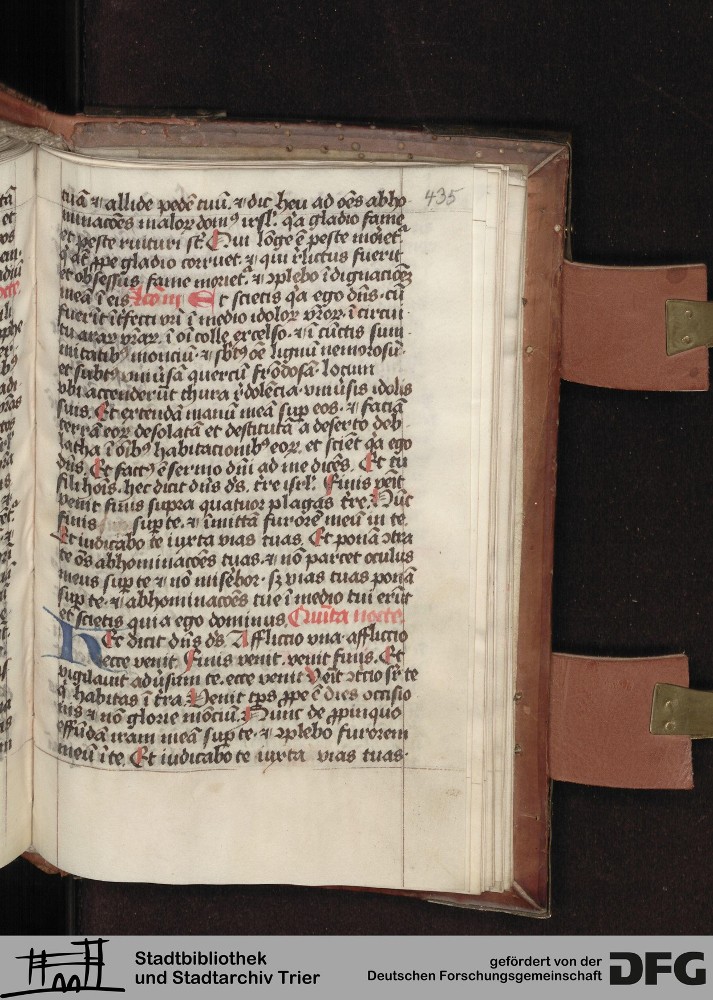 435
tuā ⁊ allide pedē tuū. ⁊ dic heu ad oēs abho
minacōes maloꝝ domꝰ isrl'. qꝛ gladio fame
et peste ruituri st̄. Qui lōge ē peste moriet᷑.
q̄ aūt ꝓpe gladio corruet. ⁊ qui r̄lictus fuerit
et obsessus fame moriet᷑. ⁊ ꝯplebo īdignacōeꝫ
meā ī eis Et scietis qꝛ ego dn̄s. cū
fuerīt īterfecti vr̄i ī medio idoloꝝ vr̄oꝝ. ī circui
tu araꝝ vr̄aꝝ. ī oī colle excelso. ⁊ ī cūctis sum
mitatibꝰ monciū. ⁊ sbtꝰ oē lignū nemorosū.
et subtꝰ vniūsā quercū frōdosā. locum
vbi accenderūt thura redolēcia vniūsis idolis
suis. Et extendā manū meā suꝑ eos. ⁊ faciā
terrā eoꝝ desolatā et destitutā a deserto deb
latha ī oībꝰ habitacionibꝰ eoꝝ. et sciēt qꝛ ego
dn̄s. Et factꝰ ē sermo dn̄i ad me dicēs. Et tu
fili hoīs. hec dicit dn̄s ds̄. tr̄e isrl'. Finis venit
venit finis supra quatuor plagas tr̄e. Nūc
finis suꝑ te. ⁊ īmittā furorē meū in te.
Et iudicabo te iuxta vias tuas. Et ponā ꝯtra
te oēs abhominacōes tuas. ⁊ nō parcet oculus
meus suꝑ te ⁊ nō miserebor. sꝫ vias tuas ponā
suꝑ te. ⁊ abhominacōes tue ī medio tui erūt
et scietis quia ego dominus. Quīta nocte.
Hec dicit dn̄s ds̄. Afflictio vna. afflictio
ecce venit. Finis venit. venit finis. Et
vigilauit adūsum te. ecce venit Venit ꝯtricio suꝑ te
q̄ habitas ī tr̄a. Venit tps̄ ꝓpe ē dies occisio
nis ⁊ nō glorie mōciū. Nunc de ꝓpinquo
effūdā iram meā suꝑ te. ⁊ ꝯplebo furorem
meū ī te. Et iudicabo te iuxta vias tuas.
Stadtbibliothek
und Stadtarchiv Trier
gefördert von der
Deutschen Forschungsgemeinschaft
DFG